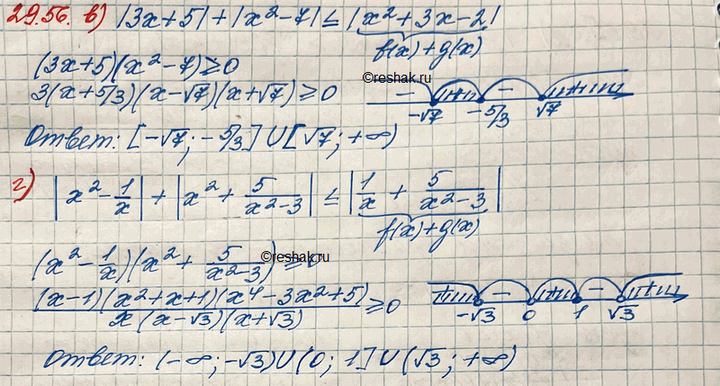 29.56. в) |3x+5| + |x²-7| ≤ |x²+3x-2|
f(x)+g(x)
(3x+5)(x²-7)≥0
©reshak.ru
3(x+5/3)(x-√7)(x+√7)≥0
- + - +
-√7 -5/3 √7
Ответ: [-√7; -5/3] U [√7; +∞)
г) |x² - 1/x| + |x² + 5/(x²-3)| ≤ |1/x + 5/(x²-3)|
f(x)+g(x)
(x² - 1/x)(x² + 5/(x²-3)) ≥0
©reshak.ru
(x-1)(x²+x+1)(x⁴-3x²+5)/(x(x-√3)(x+√3)) ≥0
+ - + - +
-√3 0 1 √3
Ответ: (-∞; -√3) U (0; 1] U (√3; +∞)